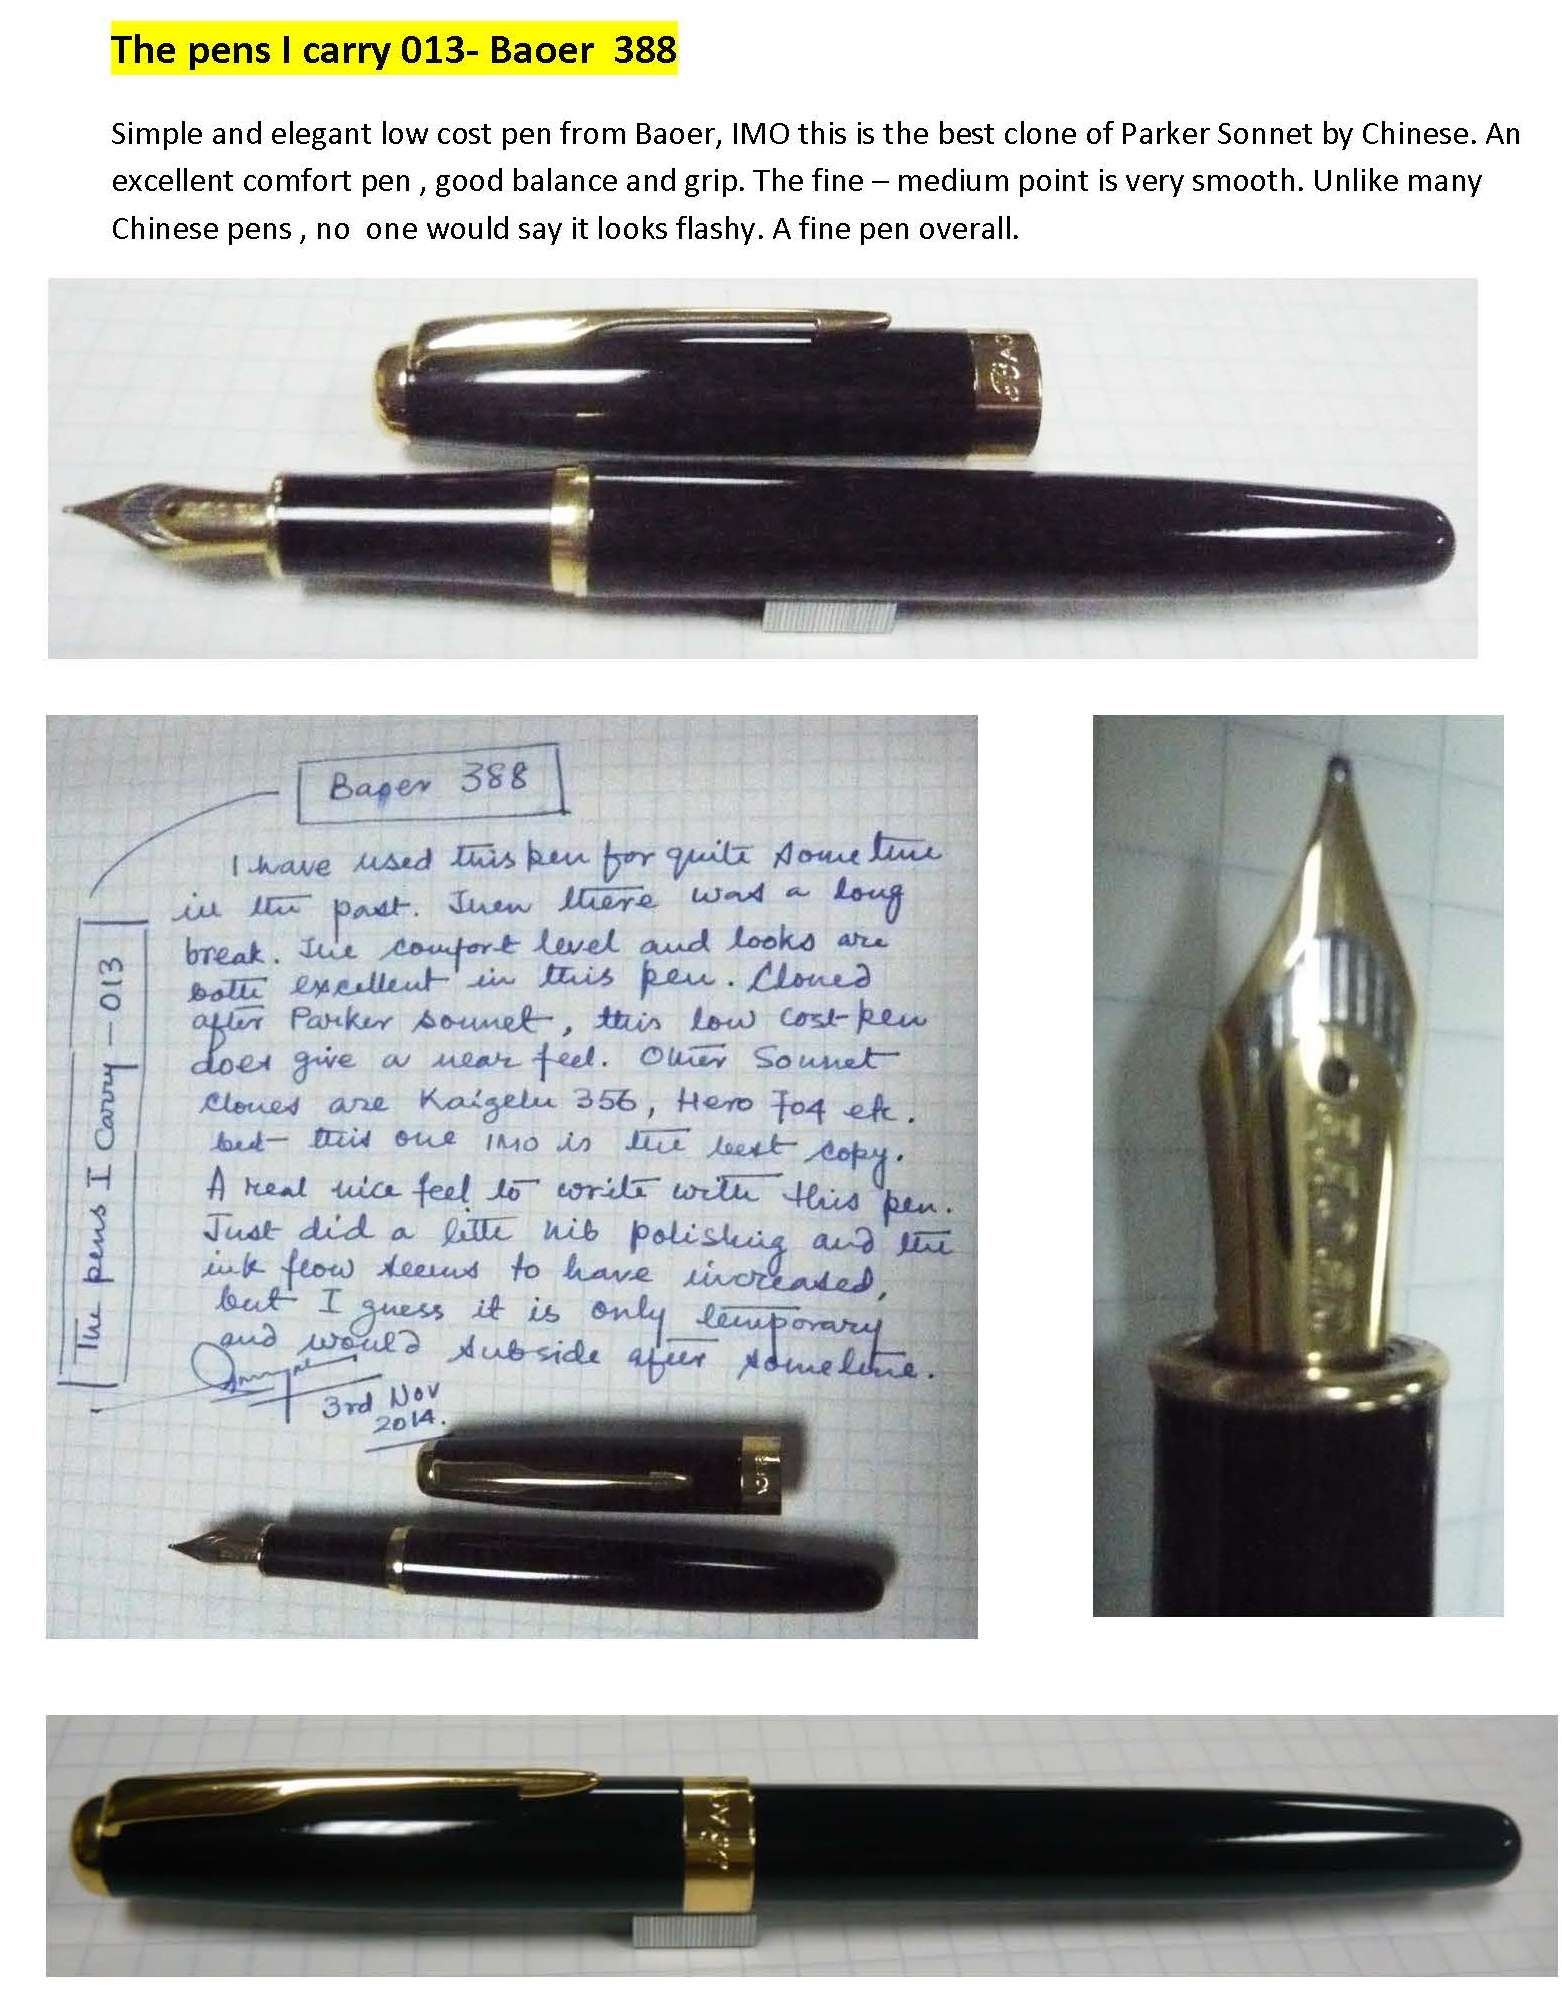 The pens I carry 013- Baoer  388
Simple and elegant low cost pen from Baoer, IMO this is the best clone of Parker Sonnet by Chinese. An
excellent comfort pen , good balance and grip. The fine – medium point is very smooth. Unlike many
Chinese pens , no  one would say it looks flashy. A fine pen overall.
Baoer 388
I have used this pen for quite sometime
in the past. Then there was a long
break. The comfort level and looks are
both excellent in this pen. Cloned
after Parker Sonnet, this low cost pen
does give a near feel. Other Sonnet
clones are Kaigelu 356, Hero 704 etc.
but this one IMO is the best copy.
A real nice feel to write with this pen.
Just did a little nib polishing and the
ink flow seems to have increased,
but I guess it is only temporary
and would subside after sometime.
3rd Nov
2014.
The pens I Carry – 013